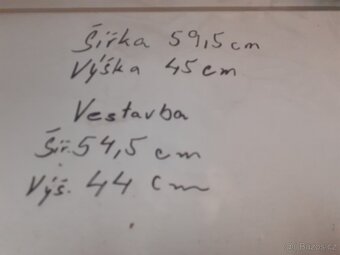 Šířka 59,5 cm
Výška 45 cm
Vestavba
Šíř. 54,5 cm
Výš. 44 cm
© Bazos.cz